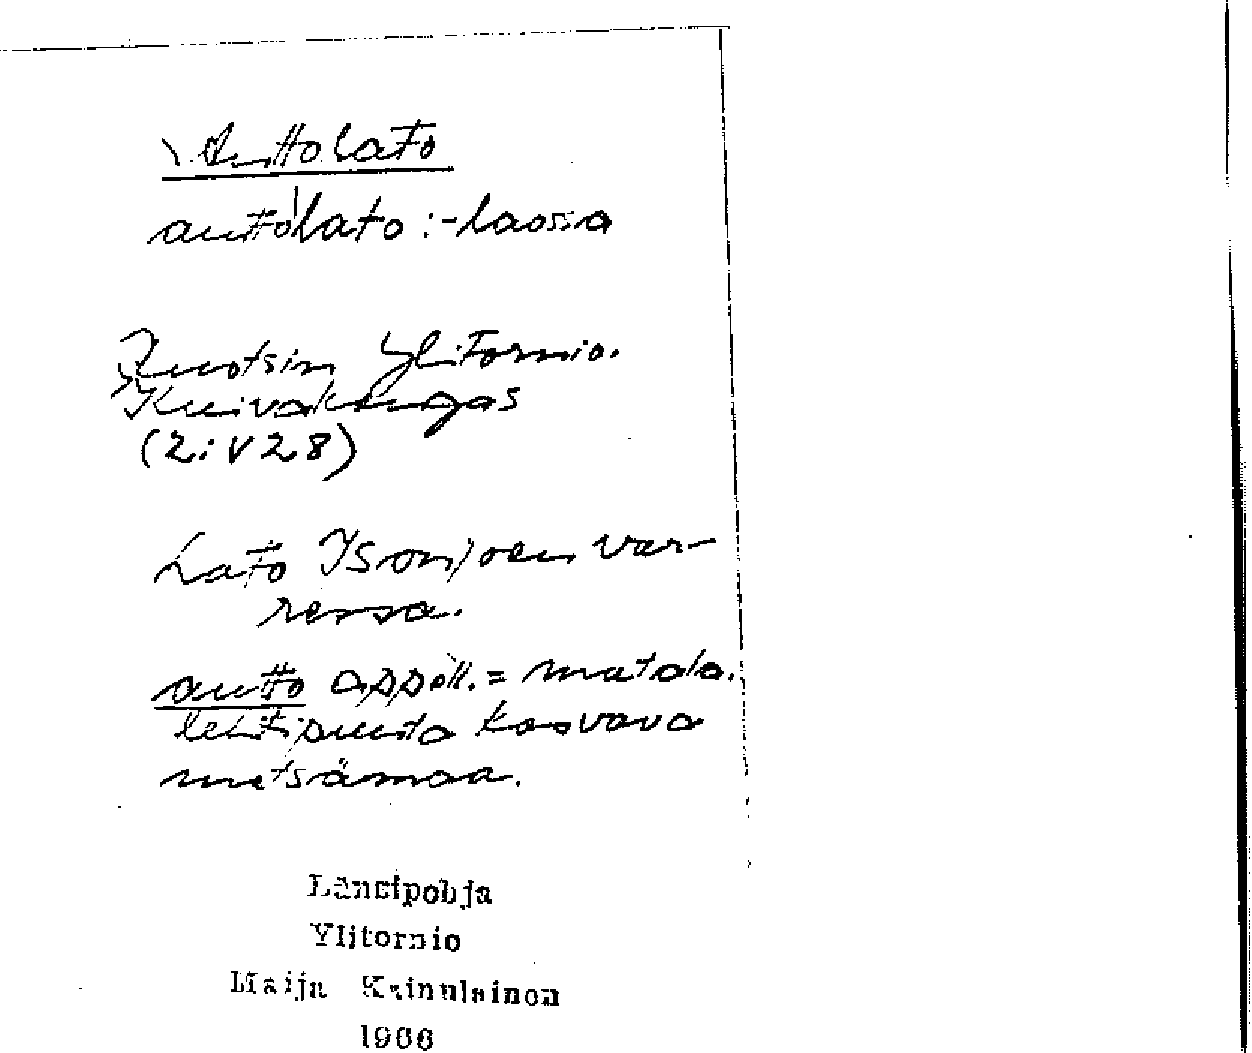 Auttolato
auttolato : -laossa
Ruotsin Ylitornio.
Kuivakangas
(2: V 28)
Lato Isonjoen var-
ressa.
autto appell. = matala.
lehtipuuta kasvava
metsämaa.
Länsipohja
Ylitornio
Maija Kainulainen
1966